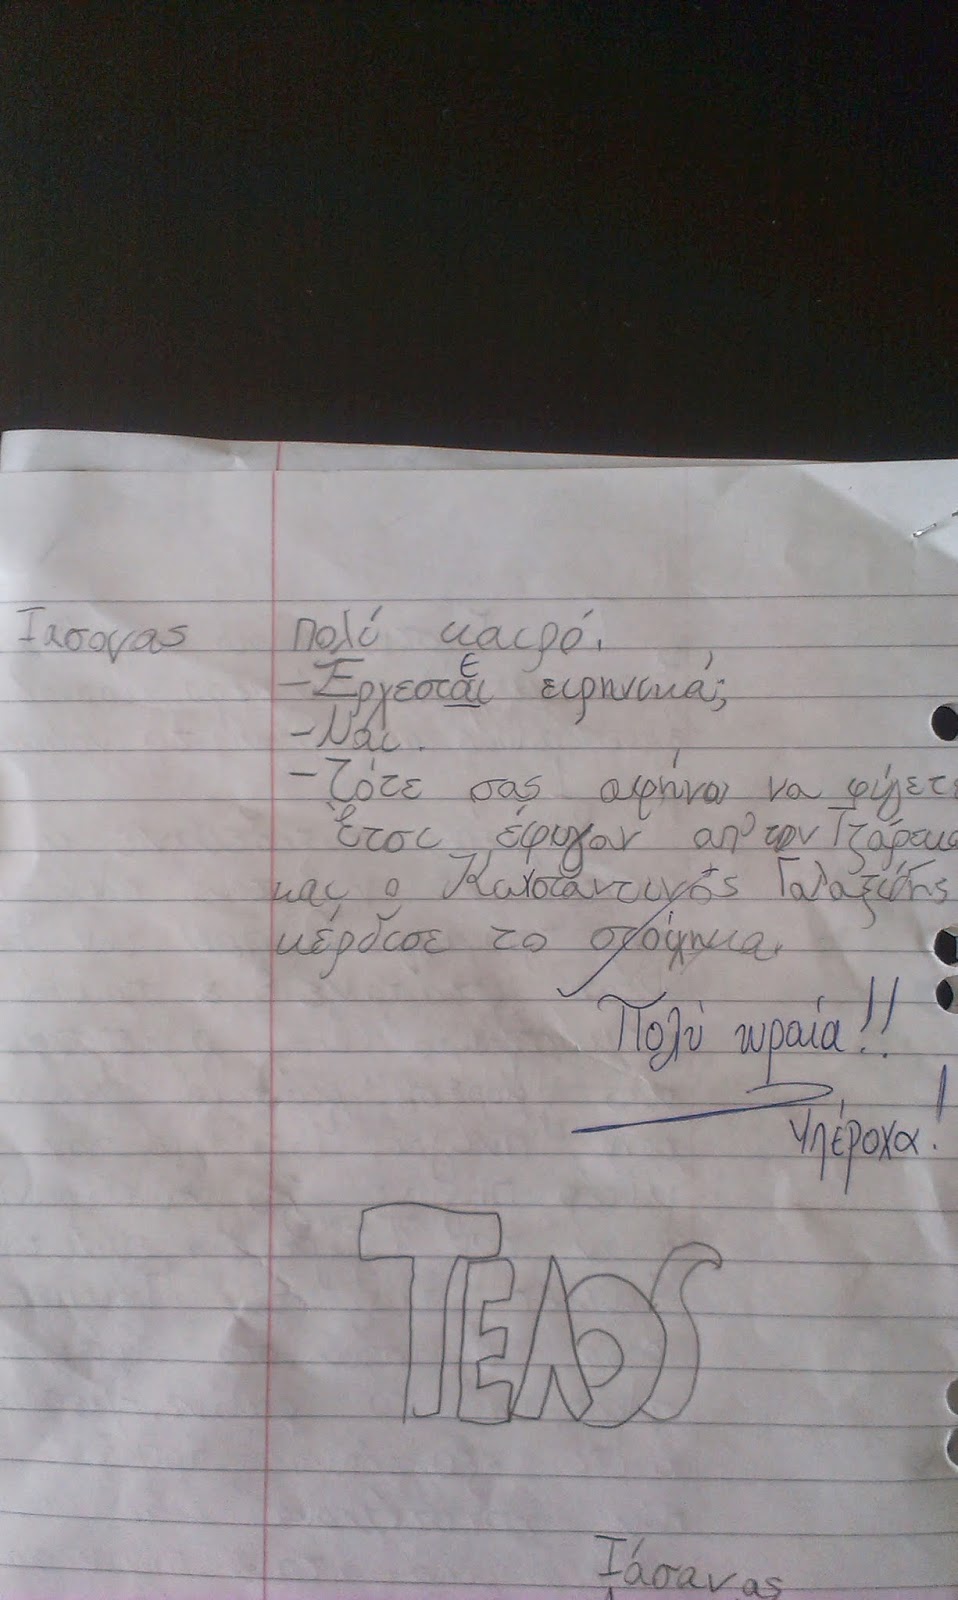 Ιασονας
πολύ καιρό.
-Έργεσται ειρηνικά;
ε
-Ναι.
-Τότε σας αφήνω να φύγετε
Έτσι έφυγαν απ' τον Τζάρεκο
και ο Κωνσταντινος Γαλαξίδης
κέρδισε το στοίχημα.
Πολύ ωραία!!
Υπέροχα!
ΤΕΛΟΣ
Ιάσονας